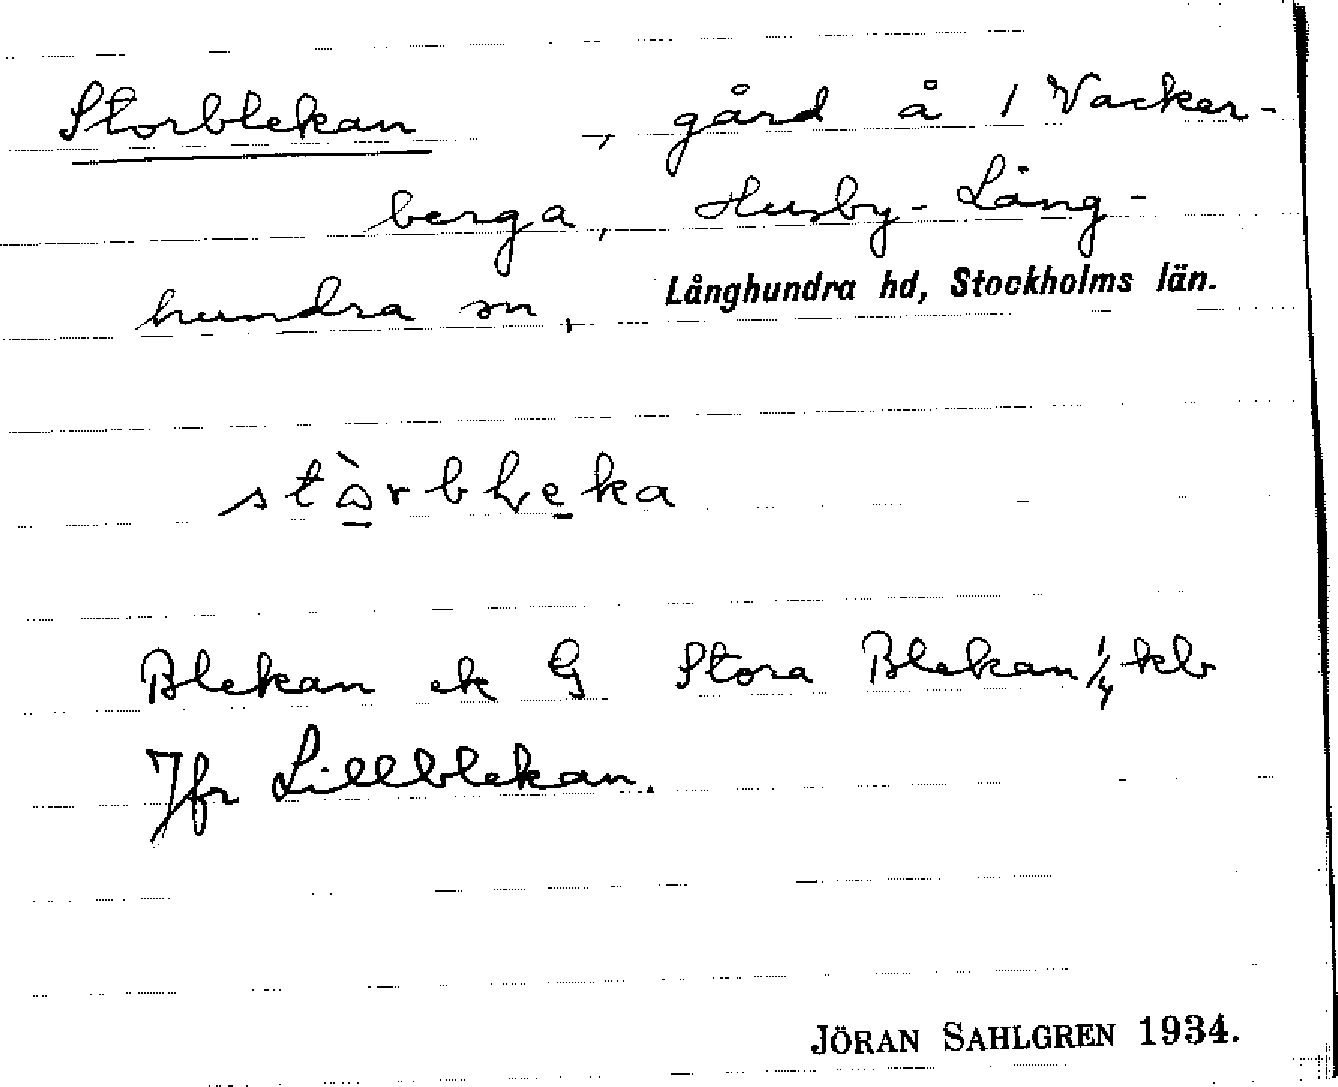 Storblekan, gård å 1 Vacker-
berga, Husby-Lång-
hundra sn, Långhundra hd, Stockholms län.
Blekan ek G Stora Blekan 1/4 klv
Jfr Lillblekan.
JÖRAN SAHLGREN 1934.